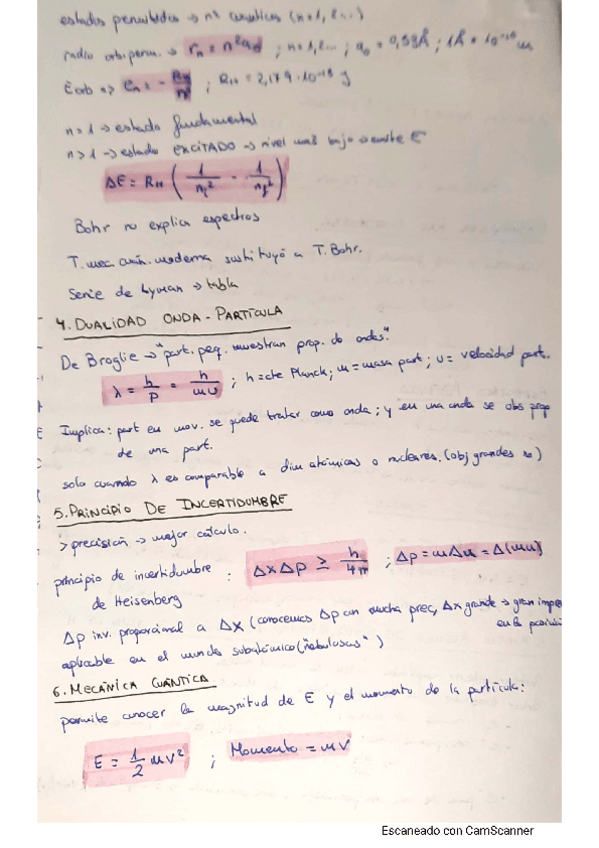 estados permitidos → nº cuánticos (n=1, 2...)
radio orb. perm. → rₙ = n²a₀ ; n=1,2... ; a₀ = 0,53Å ; 1Å = 10⁻¹⁰ m
Eorb => eₙ = - R_H/n² ; R_H = 2,179·10⁻¹⁸ J
n=1 → estado fundamental
n>1 → estado EXCITADO → nivel más bajo → emite E
ΔE = R_H ( 1/nᵢ² - 1/n_f² )
Bohr no explica espectros
T. mec. cuán. moderna sustituyó a T. Bohr.
Serie de Lyman → tabla
4. DUALIDAD ONDA - PARTÍCULA
De Broglie → "part. peq. muestran prop. de ondas."
λ = h/p = h/mv ; h = cte Planck ; m = masa part ; v = velocidad part.
Implica: part en mov. se puede tratar como onda ; y en una onda se obs prop
de una part.
solo cuando λ es comparable a dim atómicas o nucleares. (obj grandes no)
5. PRINCIPIO DE INCERTIDUMBRE
> precisión → mejor cálculo.
principio de incertidumbre : Δx Δp ≥ h/4π ; Δp = mΔu = Δ(mu)
de Heisenberg
Δp inv. proporcional a Δx (conocemos Δp con mucha prec, Δx grande → gran impre
en la posició
aplicable en el mundo subatómico ("nebulosas")
6. MECÁNICA CUÁNTICA
permite conocer la magnitud de E y el momento de la partícula:
E = 1/2 mv² ; Momento = mv
Escaneado con CamScanner